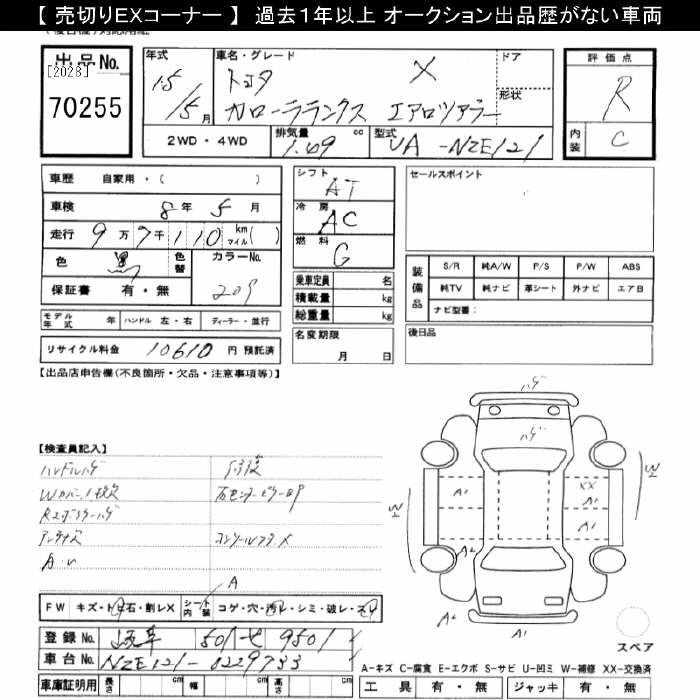 【 売切りEXコーナー 】 過去１年以上 オークション出品歴がない車両
出品No.
[2028]
70255
年式 15/5月
車名・グレード トヨタ X
カローラランクス エアロツアラー
ドア
形状
評価点
R
内装 C
2WD・4WD
排気量 1.49 cc
型式 UA-NZE121
車歴 自家用・( )
車検 8年5月
走行 9万7千110 km マイル( )
色
色替
カラーNo. 209
保証書 有・無
モデル年式 年
ハンドル 左・右
ディーラー・並行
リサイクル料金 10610 円 預託済
シフト AT
冷房 AC
燃料 G
乗車定員 名
積載量 kg
総重量 kg
名変期限 月 日
セールスポイント
装備品
S/R 純A/W P/S P/W ABS
純TV 純ナビ 革シート 外ナビ エアB
ナビ型番:
後日品
【出品店申告欄(不良箇所・欠品・注意事項等)】
【検査員記入】
ハンドルハゲ
アンテナX
A・U
コンソールフタX
A
ハゲ
ハゲ
W
W
A1
A1
XX
A1
A1
A2
A2
A1
FW キズ・トビ石・割レX
シート内装 コゲ・穴・汚レ・シミ・破レ・スレ
登録No. 501 セ 9501
車台No. NZE121-0229733
車庫証明用 長さ cm 幅 cm 高さ cm
A−キズ C−腐食 E−エクボ S−サビ U−凹ミ W−補修 XX−交換済
スペア
工具 有・無 ジャッキ 有・無